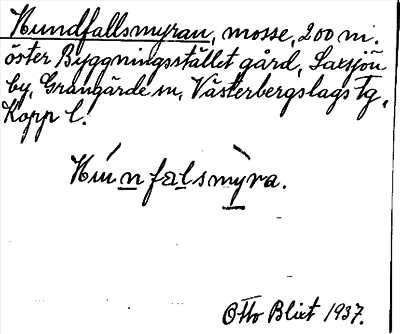 Hundfallsmyran, mosse, 200 m.
öster Byggningsstället gård, Saxsjön
by, Grangärde sn, Västerbergslags Fg,
Kopp l.
Hú̄nfalsmỳra.
Otto Blixt 1937.